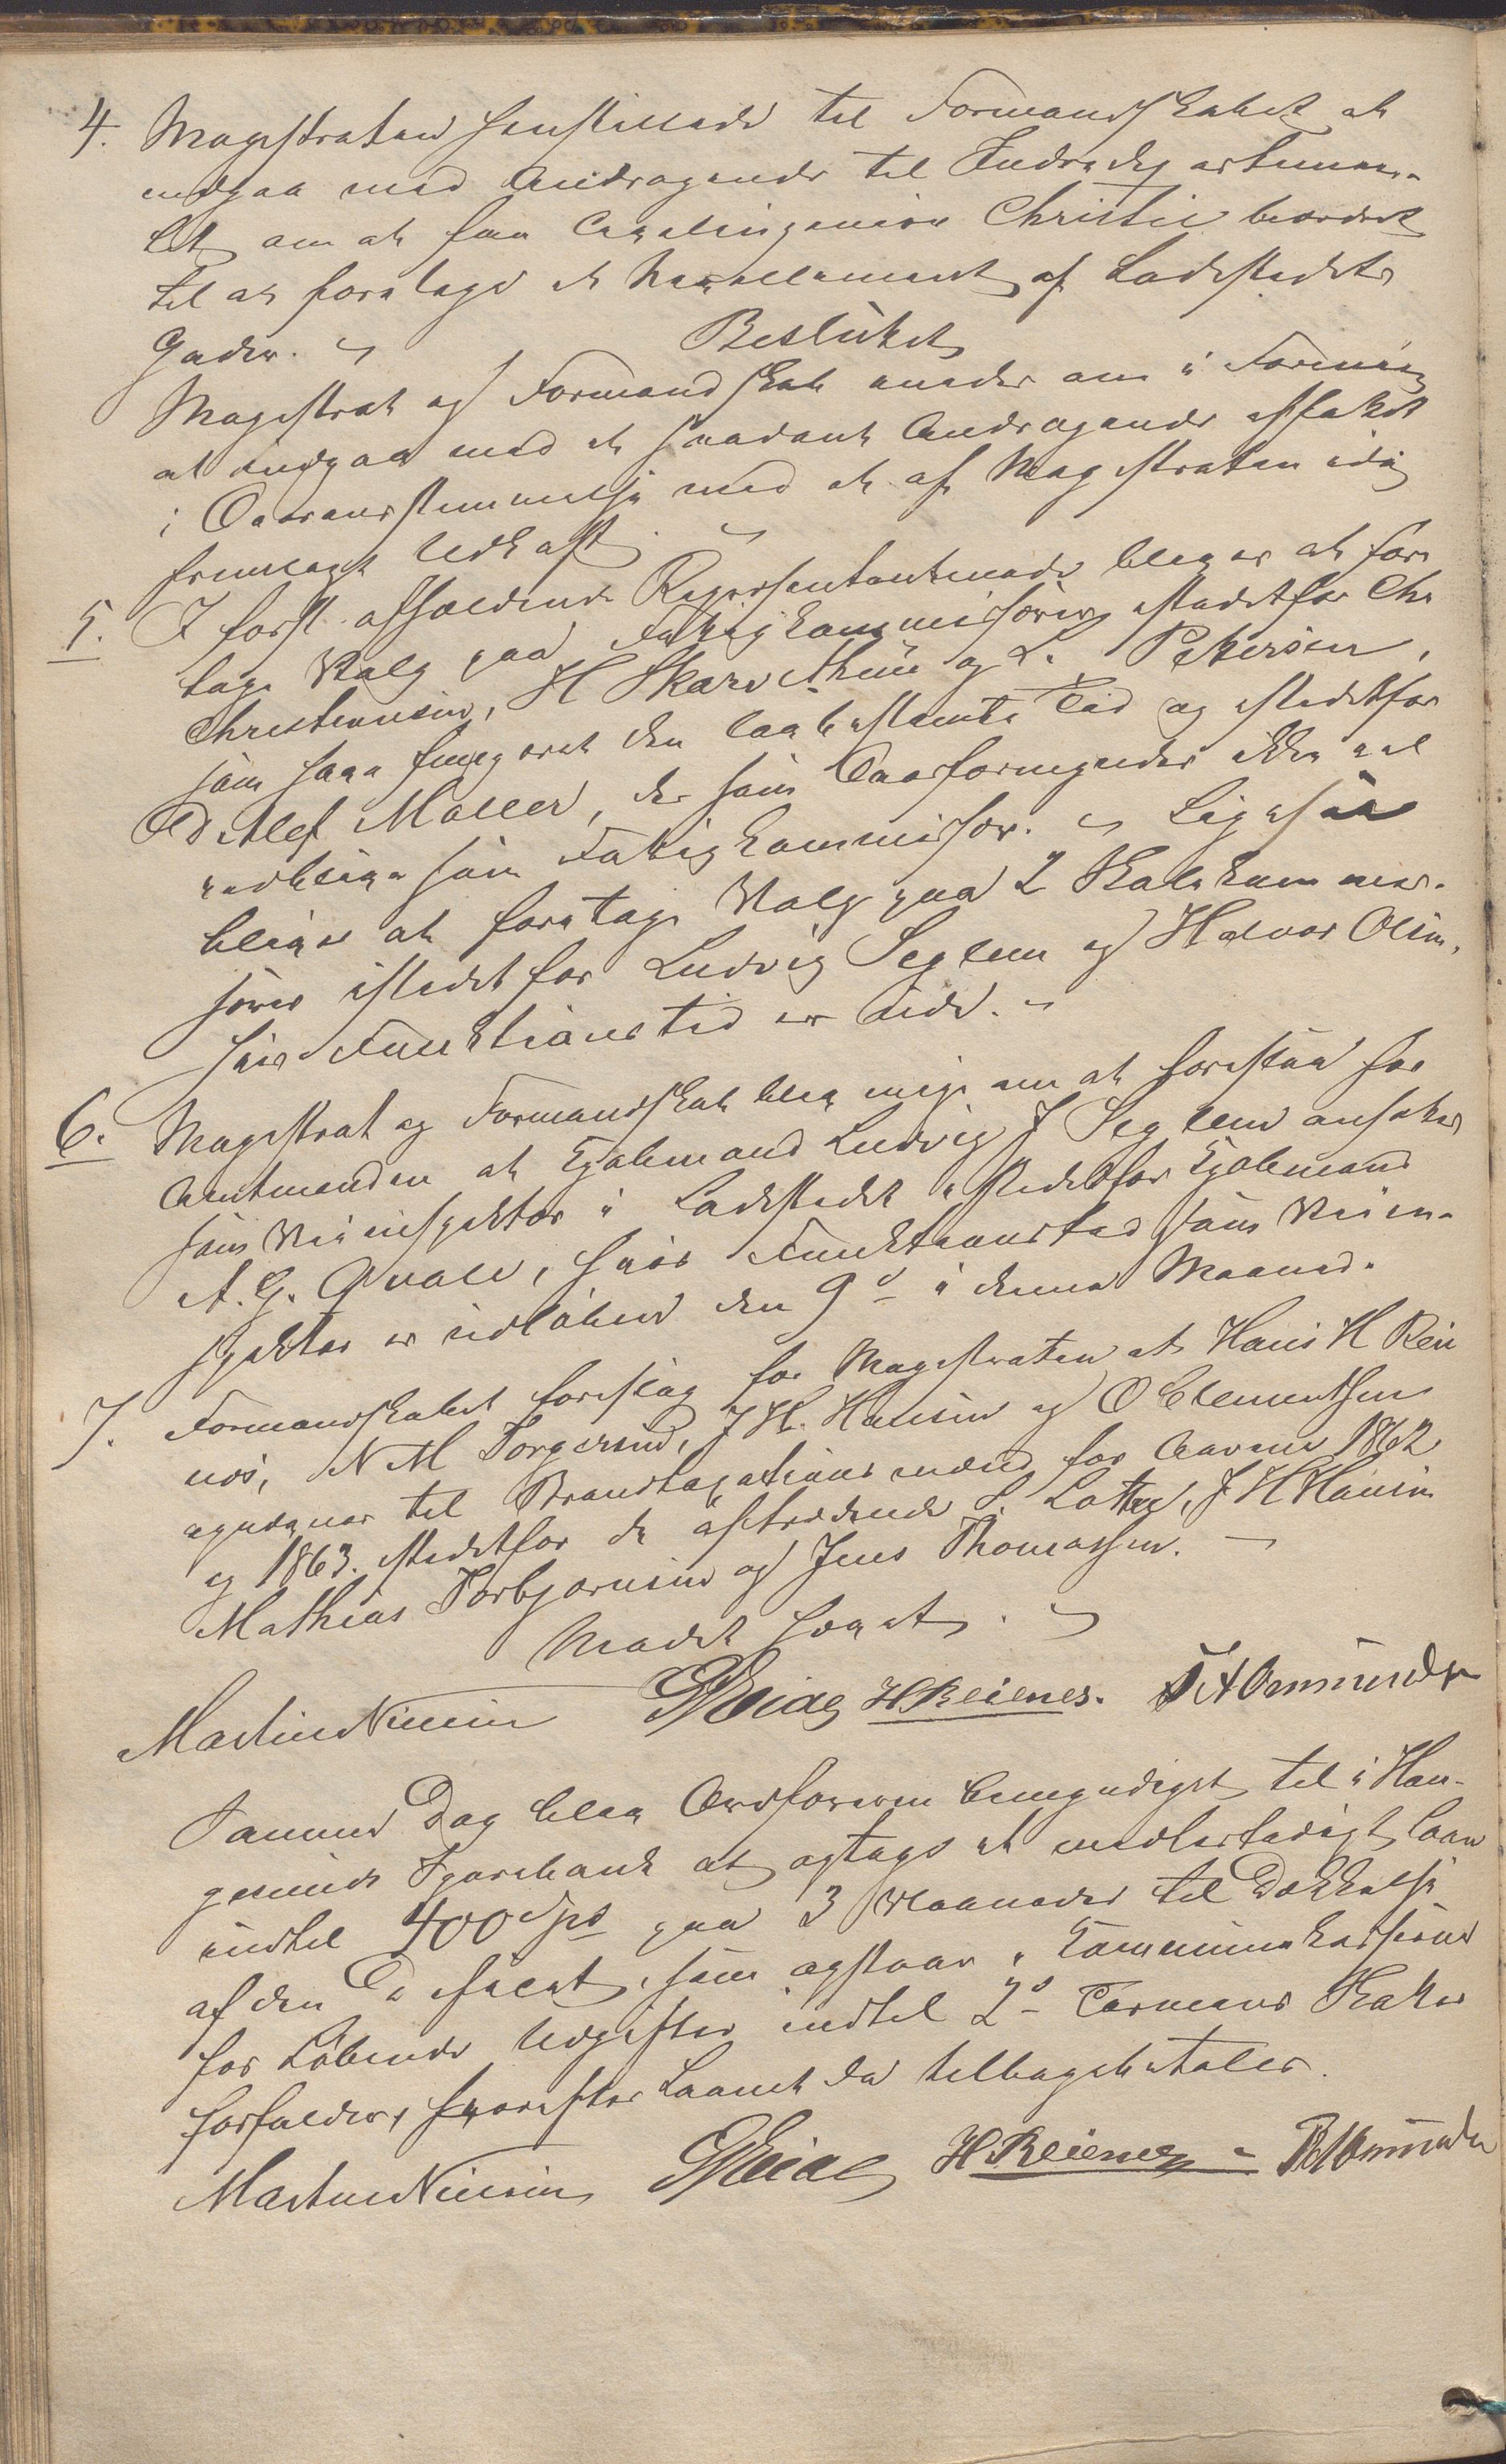 4. Magistraten henstillede til Formandskabet at
indgaa med Andragende til Indredepartemen-
tet om at faa Canalingeniør Christie beordret
til at foretage et Nevellement af Ladestedets
Gader.
Besluttet
Magistrat og Formandskab enedes om i Forening
at indgaa med et saadant Andragende affattet
i Overensstemmelse med et af Magistraten idag
fremlagt Udkast.
5. I først afholdende Repræsentantmøde bliver at fore
tage Valg paa Fattigkommissærer istedetfor Chr
Christensen, H Skarvthun og L. Petersen,
som have fungeret den lovbestemte Tid og istedetfor
Detlef Møller, der som Overformynder ikke vil
vedblive som Fattigkommissær. Ligesaa
bliver at foretage Valg paa 2 Skolekommis-
særer istedetfor Ludvig Seglem og Halvor Olsen,
hvis Funktionstid er ude.
6. Magistrat og Formandskab blev enige om at foreslaa for
Amtmanden at Kjøbmand Ludvig J Seglem ansættes
som Veiinspektør i Ladestedet istedetfor Kjøbmand
A. G. Qvale, hvis Funktionstid som Veiin-
spektør er udløben den 9d i denne Maaned.
7. Formandskabet foreslog for Magistraten at Hans H Rei
nes, N M Torgersen, J H. Hansen og O Clementsen
opnævnes til Brandtaxationsmænd for Aarene 1862
og 1863. istedetfor de aftrædende L. Lothe, J H Hansen
Mathias Torbjørnsen og Jens Thomassen.
Mødet hævet.
Martin Nilsen G Eide H Reienes.
Samme Dag blev Ordføreren bemyndiget til i Hau-
gesunds Sparebank at optage et midlertidigt Laan
indtil 400 Spd paa 3 Maaneder til Dækkelse
af den Deficit, som opstaar i Kommunekassens
for Løbende Udgifter indtil 2d Termins Skatter
forfalder, hvorefter Laanet da tilbagebetales.
Martin Nilsen G Eide H. Reienes